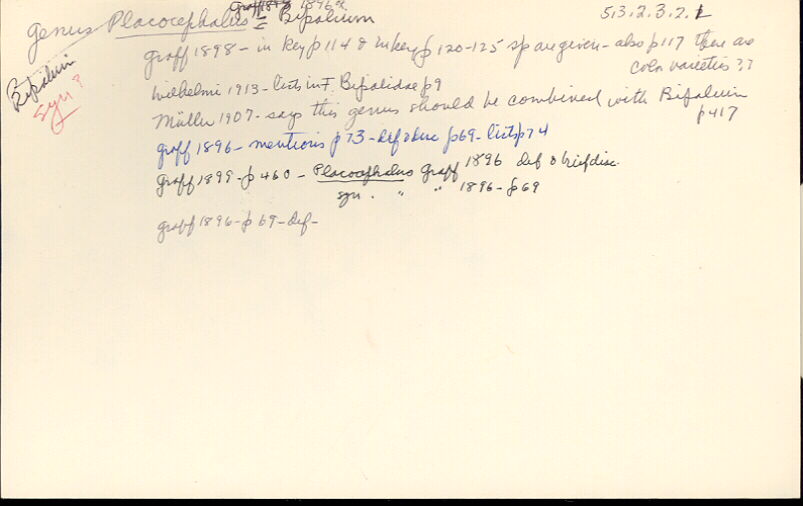 Graff 1896 a 5.3.2.3.2.1
Genus Placocephalus = Bipalium
Graff 1898 - in key p 114 & in key p 120-125 sp are given - also p 117 there are
color varieties ??
Bipalium
syn?
Wilhelmi 1913 - lists in F. Bipalidae p 9
Müller 1907 - says this genus should be combined with Bipalium
p 417
Graff 1896 - mentions p 73 - def & disc p 69 - lists p 74
Graff 1899 - p 460 - Placocephalus Graff 1896 def & brief disc.
syn. " " 1896 - p 69
Graff 1896 - p 69 - def -